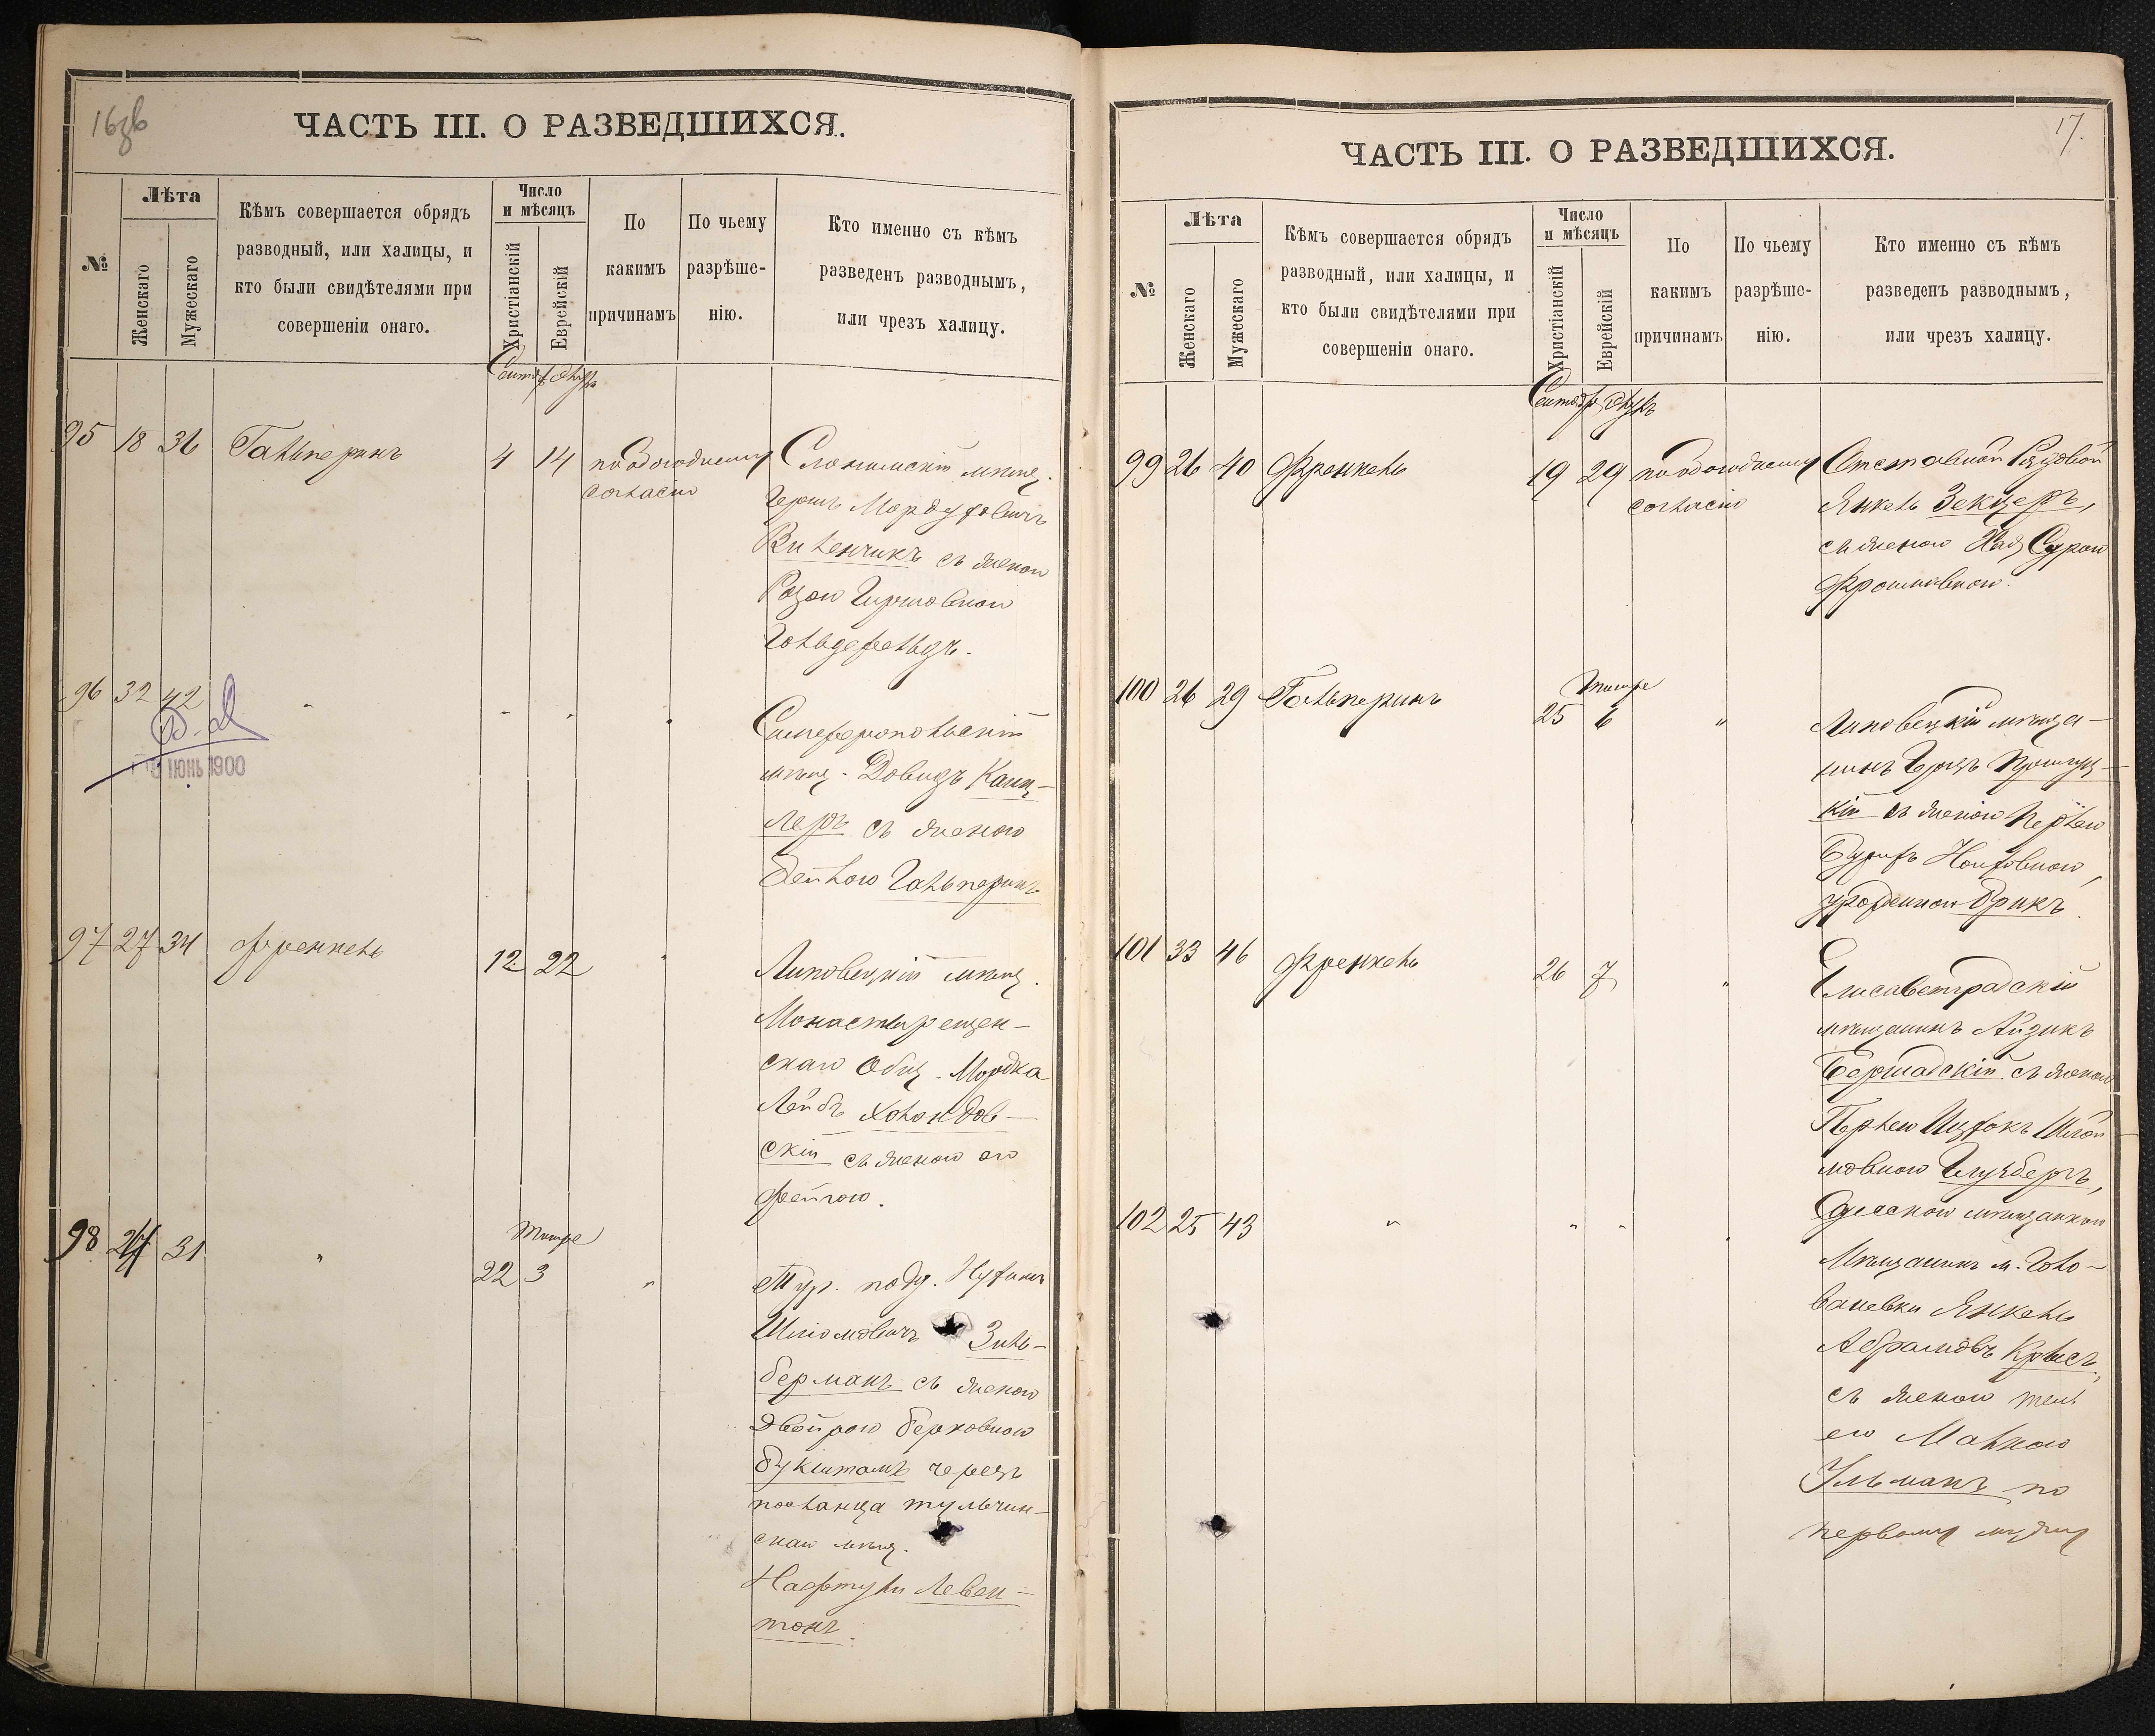 16об
ЧАСТЬ III. О РАЗВЕДШИХСЯ.
№
Лѣта
Женскаго
Мужескаго
Кѣмъ совершается обрядъ
разводный, или халицы, и
кто были свидѣтелями при
совершеніи онаго.
Число
и мѣсяцъ
Христіанскій
Еврейскій
По
какимъ
причинамъ
По чьему
разрѣше-
нію.
Кто именно съ кѣмъ
разведенъ разводнымъ,
или чрезъ халицу.
95 18 36 Гальперинъ 4 14 по обоюдному
согласію
Слонимскій мѣщ.
Герш Мордуховичъ
Виленчикъ съ женою
Розою Гиршовною
Гольдефельдъ.
96 32 42 " " " "
июнь 1900
Симферопольскій
мѣщ. Довидъ Канц-
леръ съ женою
Бейлою Гальперинъ
97 27 34 Френкель 12 22 "
Липовецкій мѣщ.
Монастырещен-
скаго Общ. Мордка
Лейбъ Холондов-
скій съ женою его
Фейгою.
Тишре
98 31 " 22 3 "
Тур. подд. Нухимъ
Шліомовичъ Зиль-
берманъ съ женою
Двойрою Берковною
Букштамъ черезъ
посланца тульчин-
скаго мѣщ.
Нафтулы Левен-
тонъ.
17.
ЧАСТЬ III. О РАЗВЕДШИХСЯ.
№
Лѣта
Женскаго
Мужескаго
Кѣмъ совершается обрядъ
разводный, или халицы, и
кто были свидѣтелями при
совершеніи онаго.
Число
и мѣсяцъ
Христіанскій
Еврейскій
По
какимъ
причинамъ
По чьему
разрѣше-
нію.
Кто именно съ кѣмъ
разведенъ разводнымъ,
или чрезъ халицу.
99 26 40 Френкель 19 29 по обоюдному
согласію
Отставной Рядовой
Янкель Зекцеръ,
съ женою Хая Сурою
Фроимовною.
Тишре
100 26 29 Гальперинъ 25 6 "
Липовецкій мѣща-
нинъ Герцъ
кій съ женою Перлею
уроженною Брикъ.
101 33 46 Френкель 26 7 "
Елисаветградскій
мѣщанинъ Айзикъ
Бершадскій съ женою
Перлею Шлой-
мовною Гинзбергъ,
Одесскою мѣщанкою
102 25 43 " " " "
Мѣщанинъ м. Голо-
ваневки Янкель
Абрамовъ Крысъ,
съ женою
его Малкою
Ульманъ по
первому мужу